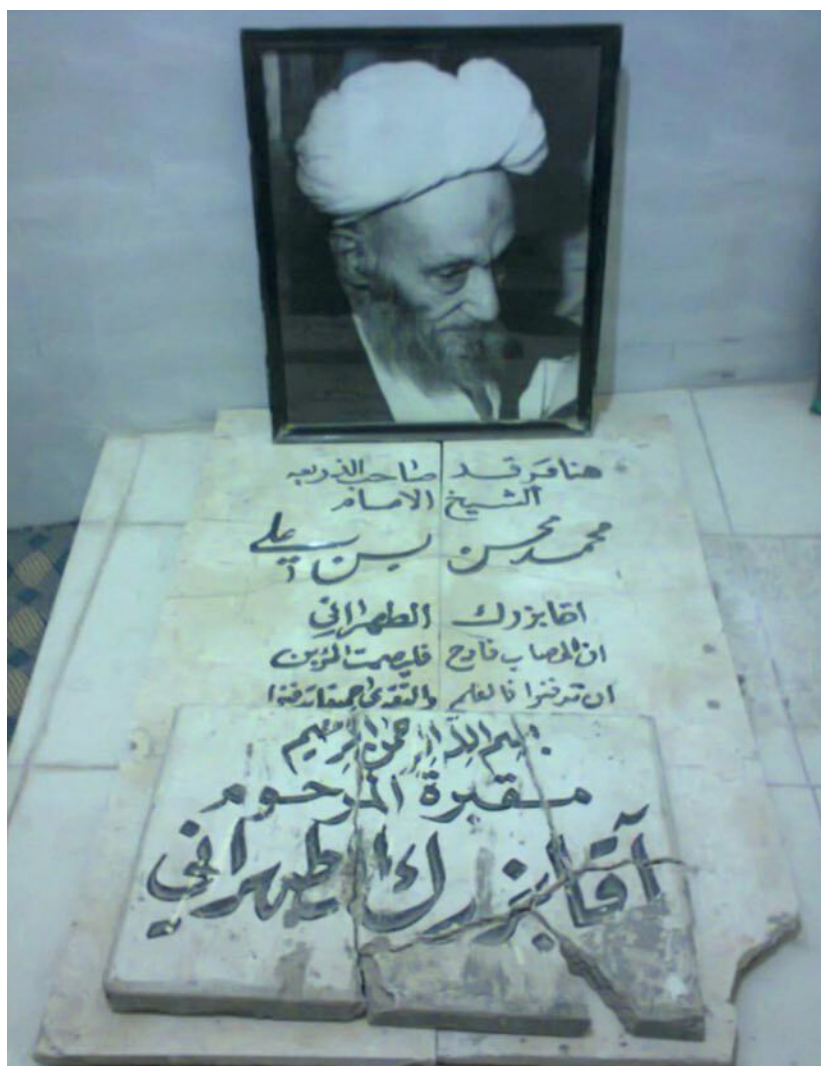 هنا مرقد صاحب الذريعه
الشيخ الامام
محمد محسن بن علي
اقابزرك الطهراني
ان المصاب فادح فليصمت المؤبن
ان تدفنوا فالعلم والتقى جميعا تدفنوا
بسم الله الرحمن الرحيم
مقبرة المرحوم
آقابزرك الطهراني